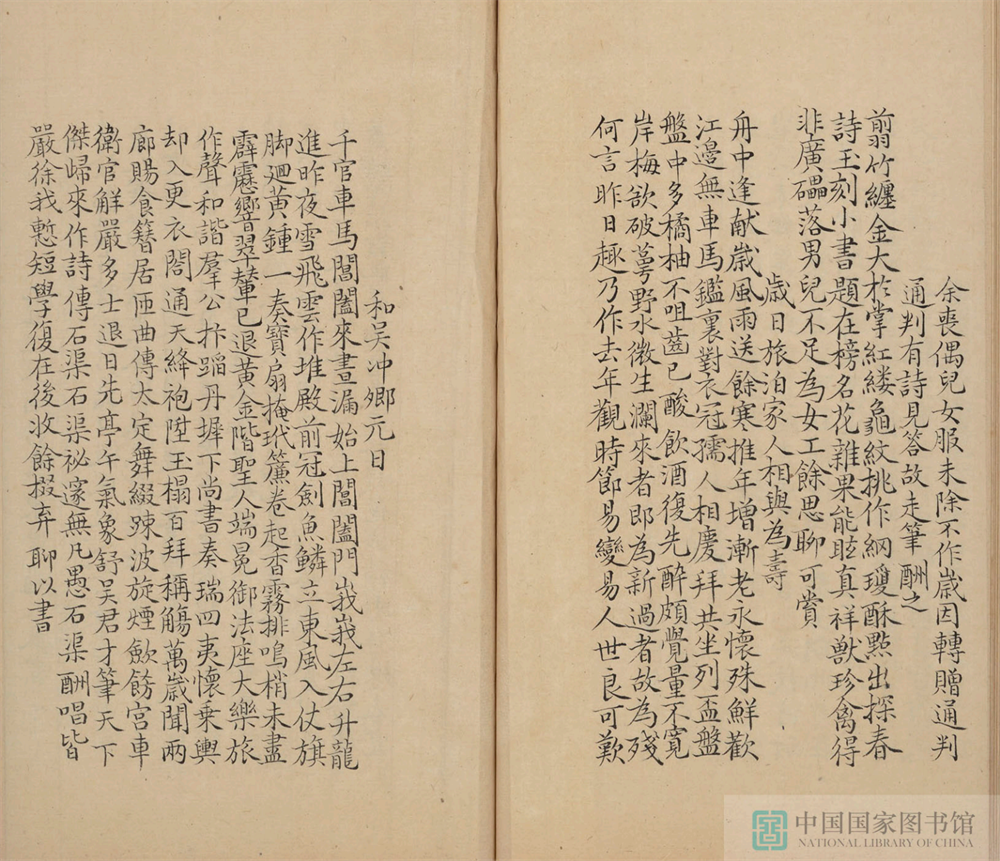 余喪偶兒女服未除不作歲因轉贈通判
通判有詩見答故走筆酬之
翦竹纏金大於掌紅縷龜紋挑作網瓊酥點出探春
詩玉刻小書題在榜名花雜果能眩真祥獸珍禽得
非廣礧落男兒不足為女工餘思聊可賞
歲日旅泊家人相與為壽
舟中逢献歲風雨送餘寒推年增漸老永懷殊鮮歡
江邊無車馬鑑裏對衣冠孺人相慶拜共坐列盃盤
盤中多橘柚不咀齒已酸飲酒復先醉頗覺量不寬
岸梅欲破萼野水微生瀾來者即為新過者故為殘
何言昨日趣乃作去年觀時節易變易人世良可歎
和吴冲卿元日
千官車馬閶闔來晝漏始上閶闔門峩峩左右升龍
進昨夜雪飛雲作堆殿前冠劍魚鱗立東風入仗旗
脚廻黄鍾一奏寶扇掩玳簾卷起香霧排鳴梢未盡
霹靂響翠輦已退黄金階聖人端冕御法座大樂旅
作聲和諧羣公抃蹈丹墀下尚書奏瑞四夷懷乗輿
却入更衣閤通天絳袍陞玉榻百拜稱觴萬歲聞兩
廊賜食簪居匝曲傳太定舞綴踈波旋煙歛飭宫車
衛官解嚴多士退日先亭午氣象舒吴君才筆天下
傑歸來作詩傳石渠石渠祕邃無凡愚石渠酬唱皆
嚴徐我慙短學復在後收餘掇弃聊以書
中国国家图书馆
NATIONAL LIBRARY OF CHINA